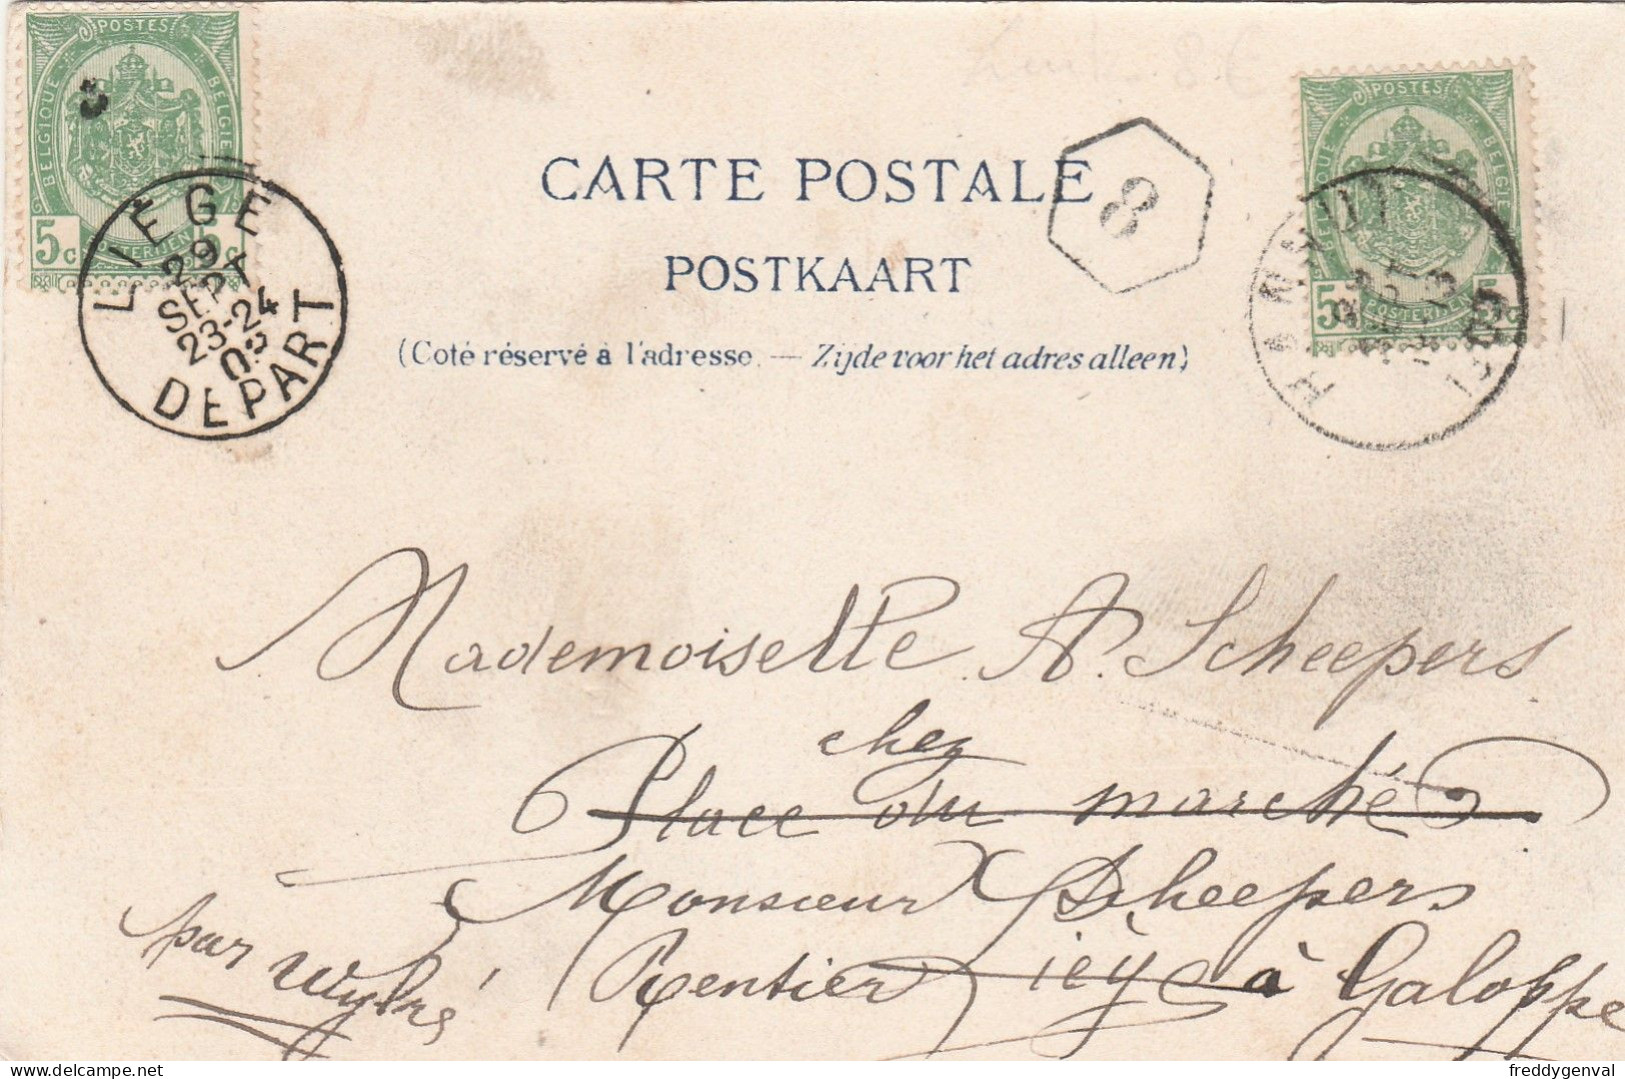 POSTES
BELGIQUE BELGIE
5c POSTERIJEN 5c
LIÈGE
29
SEPT
23-24
03
DEPART
POSTES
BELGIQUE BELGIE
5c POSTERIJEN 5c
8 €
8
CARTE POSTALE
POSTKAART
(Coté réservé à l'adresse. — Zijde voor het adres alleen)
Mademoiselle A. Scheepers
chez
Place du marché
Monsieur Scheepers
Rentier icij à Galoppe
par Wylré
freddygenval